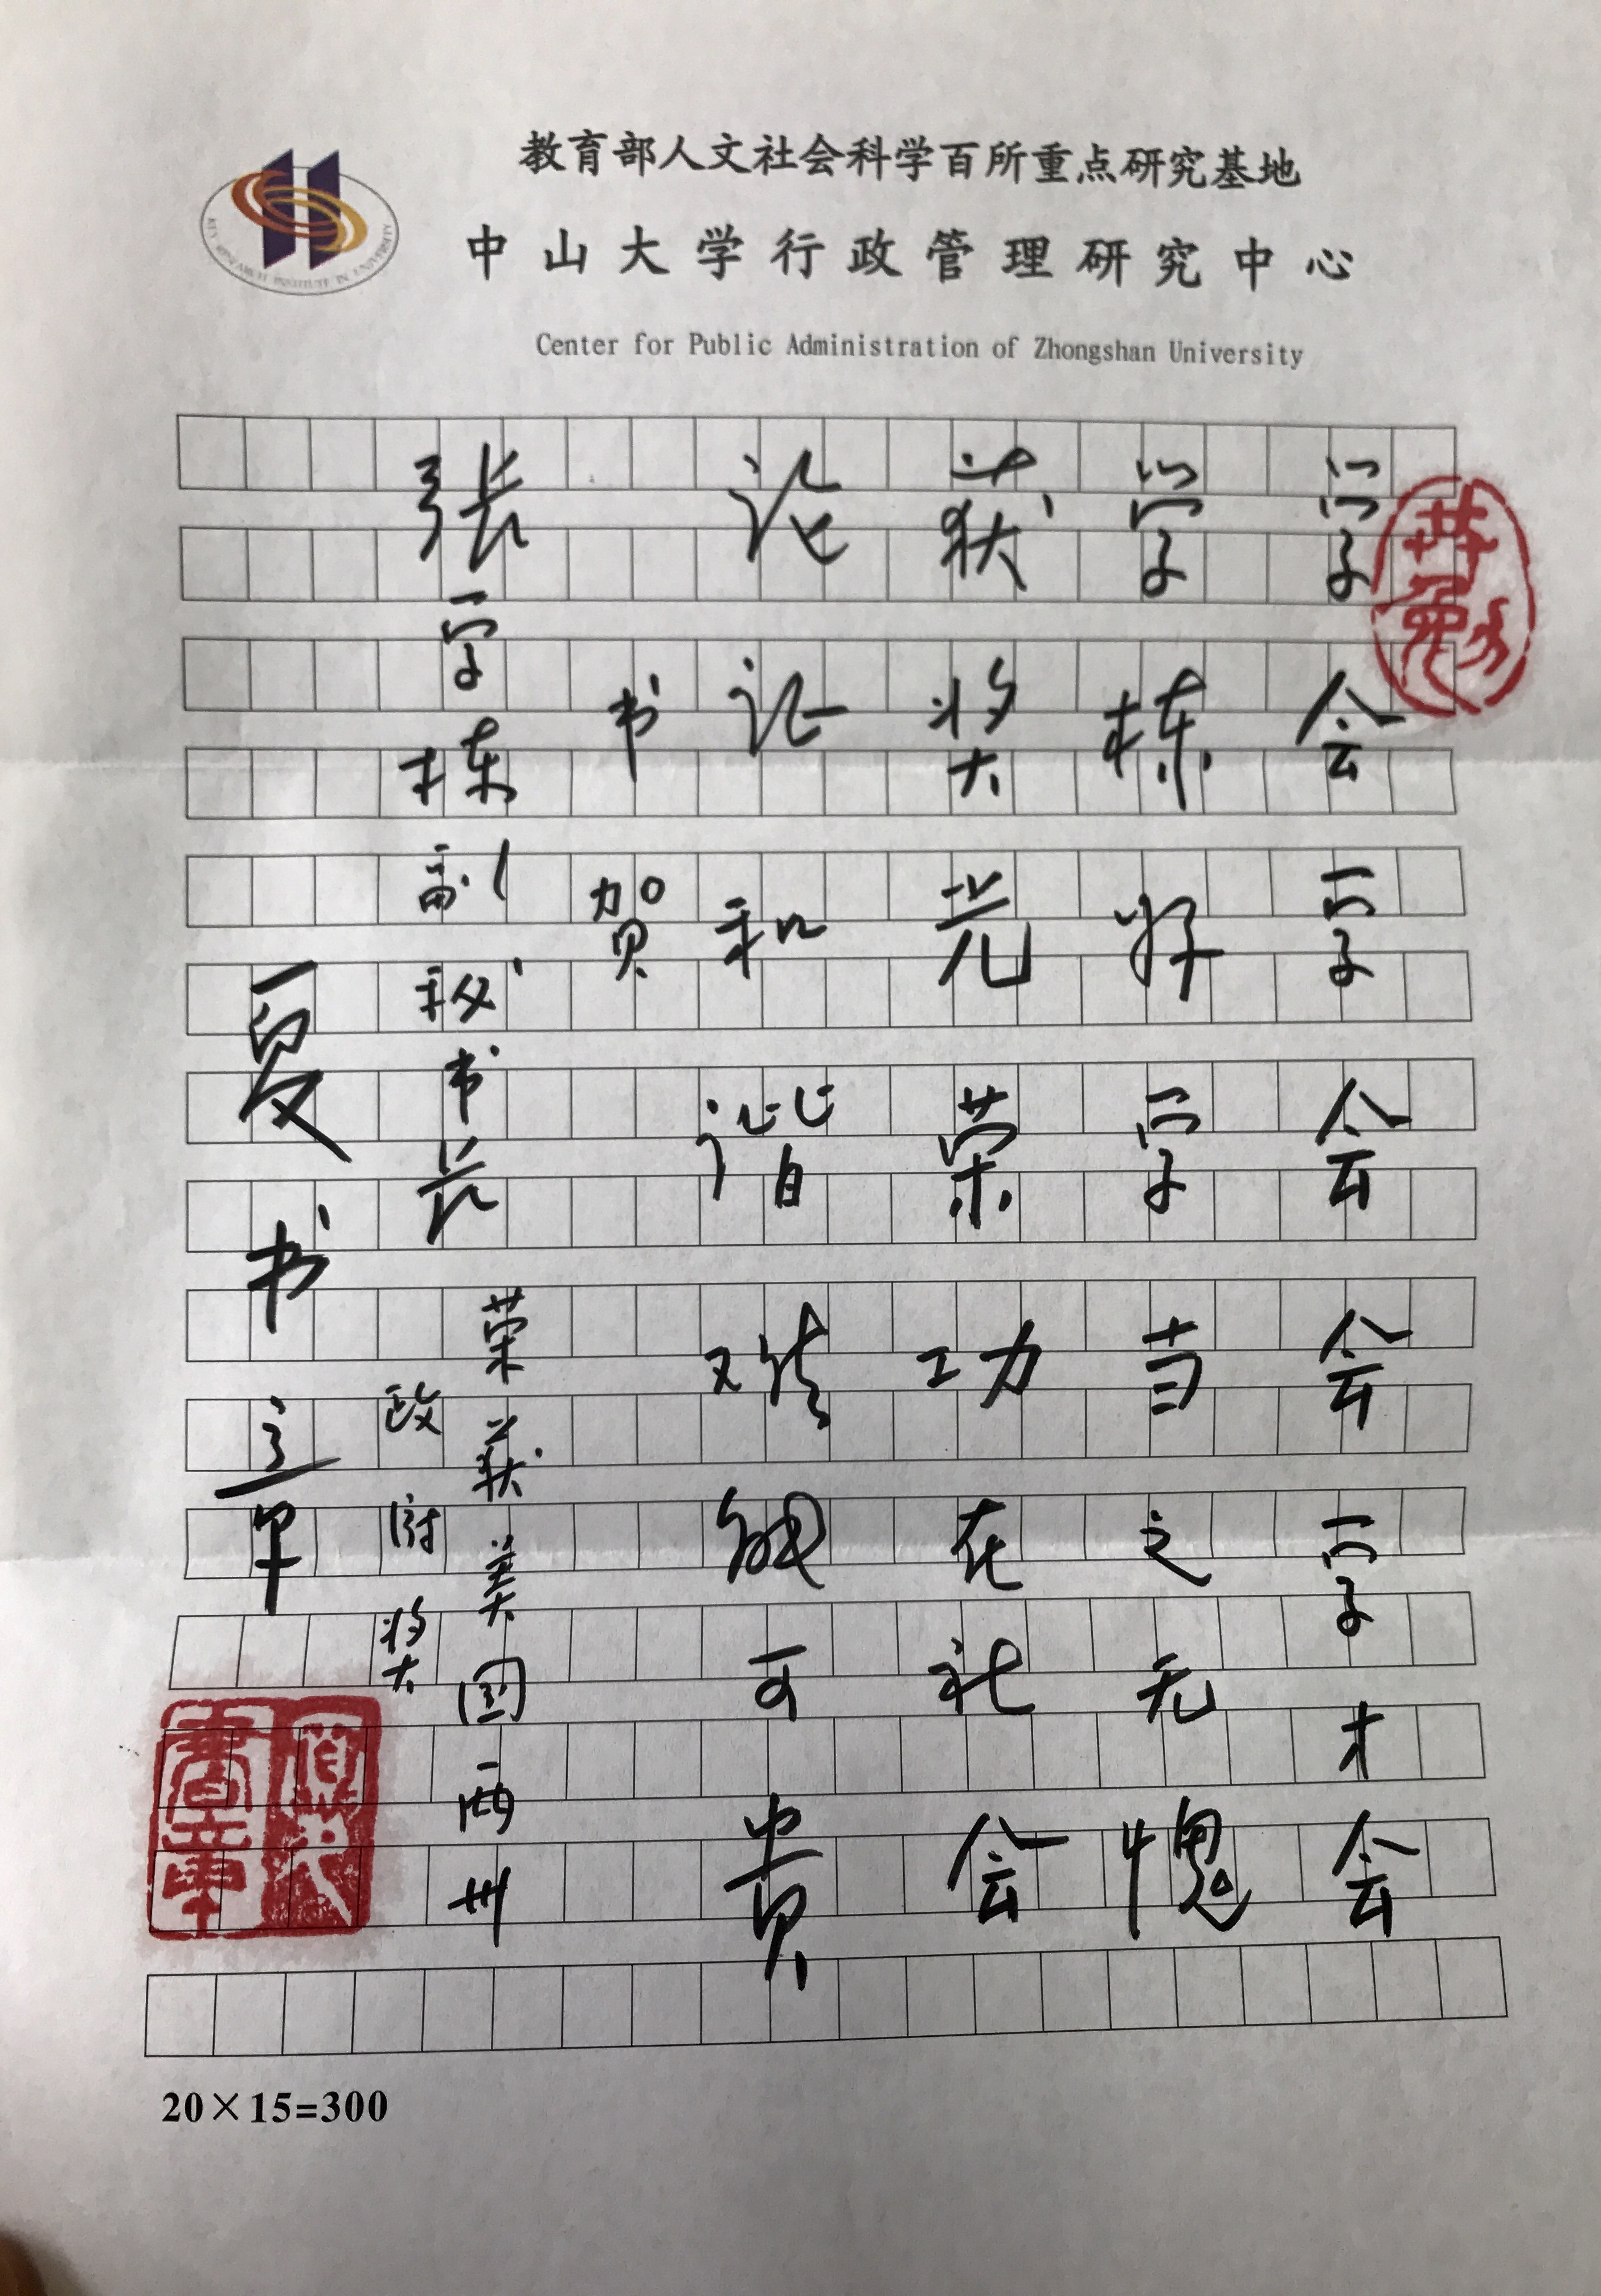 KEY RESEARCH INSTITUTE IN UNIVERSITY
教育部人文社会科学百所重点研究基地
中山大学行政管理研究中心
Center for Public Administration of Zhongshan University
共勉
学会学会会学才会
学栋好学当之无愧
获奖光荣功在社会
论证和谐难能可贵
书贺
张学栋副秘书长
荣获美国两州
政府奖
夏书章
書章
20×15=300